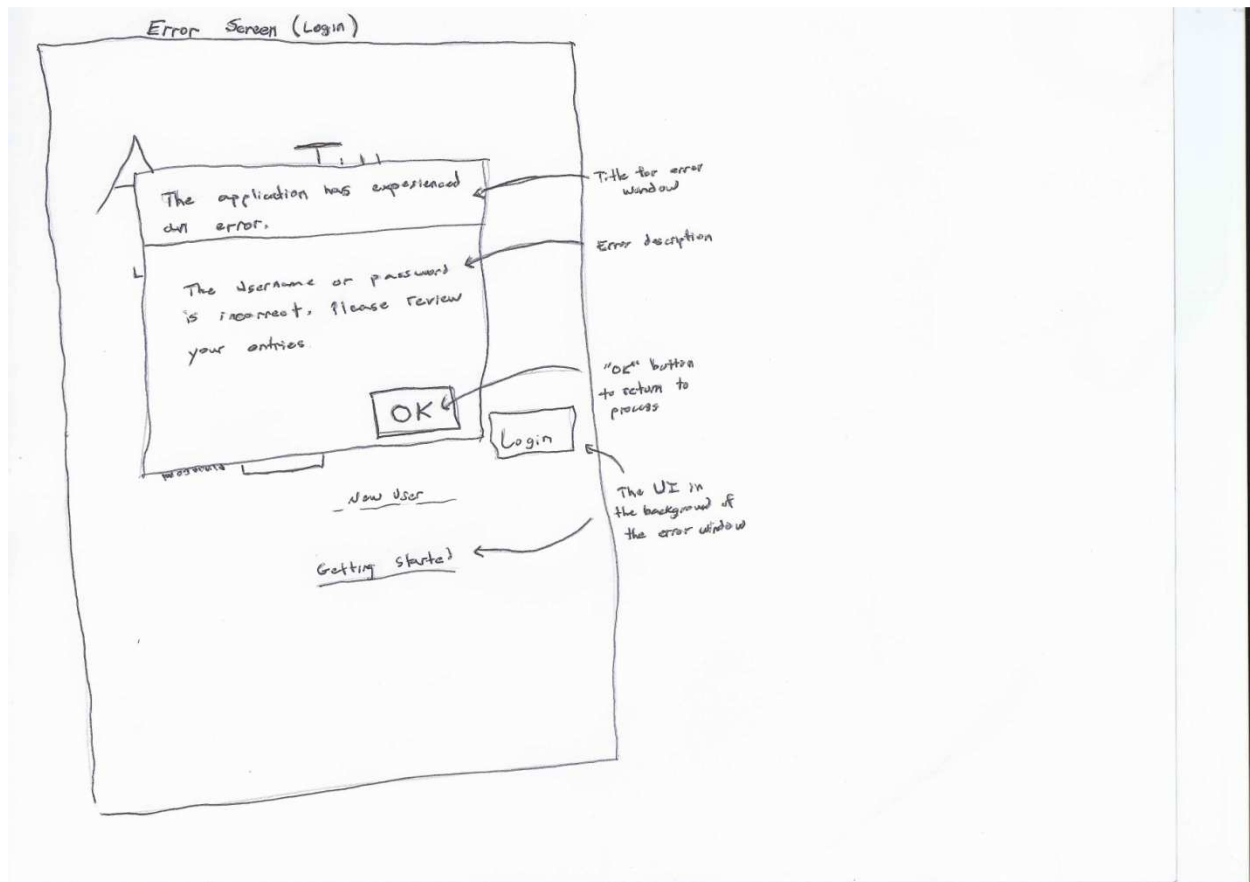 Error Screen (Login)
The application has experienced
an error.
The Username or password
is incorrect. Please review
your entries
OK
Login
New User
Getting Started
Title for error
window
Error description
"OK" button
to return to
process
The UI in
the background of
the error window